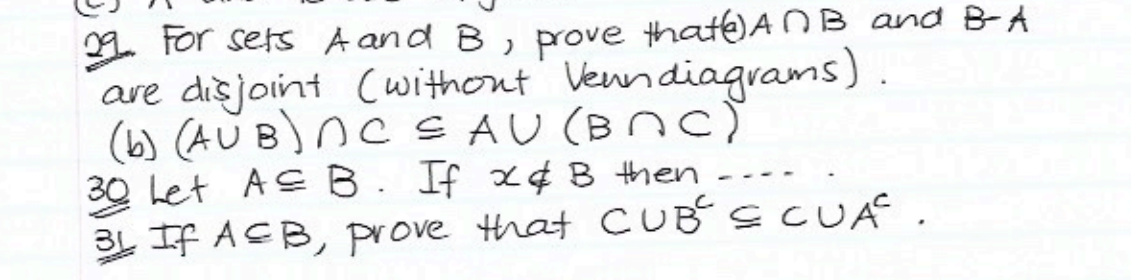 29. For sets A and B, prove that (a) A ∩ B and B-A
are disjoint (without Venn diagrams).
(b) (A ∪ B) ∩ C ⊆ A ∪ (B ∩ C)
30 Let A ⊆ B. If x ∉ B then ----.
31 If A ⊆ B, prove that C ∪ Bᶜ ⊆ C ∪ Aᶜ.